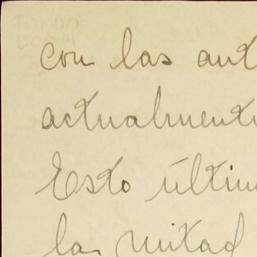 con las aut
actualment
Esto últim
la mitad